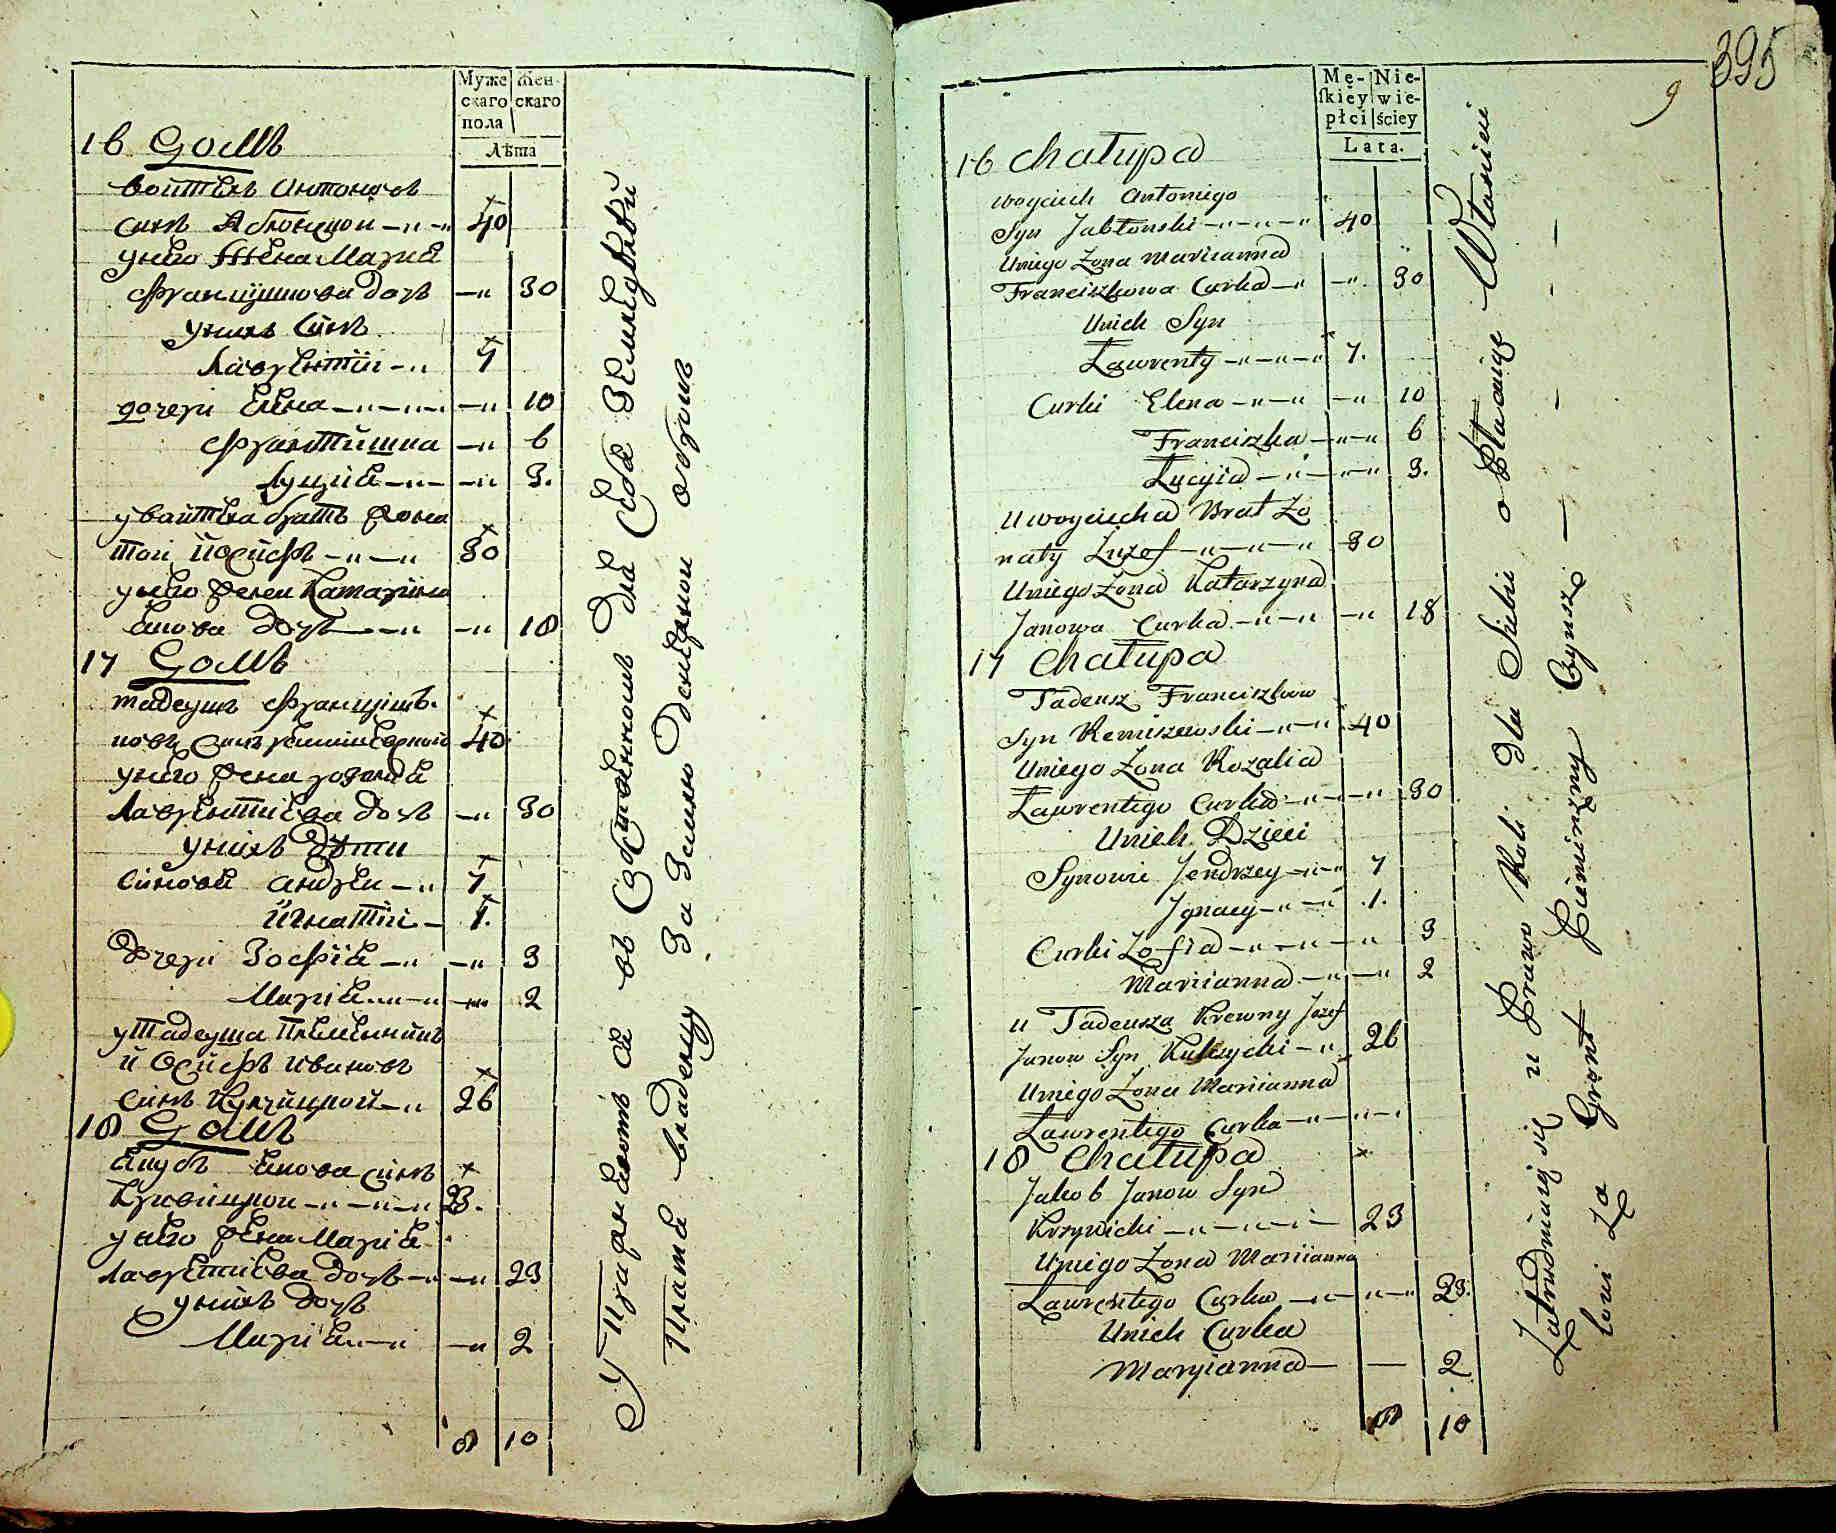 Муже
скаго
пола
Жен-
скаго
Лѣта
16 Домъ
Войтехъ Антоновъ
синъ Яблонский — 40
у него Жена Мариа
Францишкова дочь — 30
у нихъ Синъ
Лаврентий — 7
дочери Елена — 10
Франтишка — 6
Луциа — 3.
у Войтеха братъ жона
тий Йосифъ — 30
у него жена Катарина
Янова дочь — 18
17 Домъ
Тадеушъ Францишъ-
ковъ синъ — 40
у него жена розалиа
Лаврентиева дочь — 30
у нихъ Дѣти
Синовя Андрей — 7
Игнатий — 1.
Дочери Зофиа — 3
Мариа — 2
у Тадеуша Племенникъ
Иосифъ Ивановъ
синъ Кулчицкий — 26
18 Домъ
Якубъ Янова синъ
Кривицкий — 23.
у него жена Мариа
Лаврентиева дочь — 23
у нихъ дочь
Мариа — 2
8 10
Упражняютъся въ для Себя
Права владеющу За Землю оброкъ
395
9
Mę-
skiey
płci
Nie-
wie-
ściey
Lata.
16 Chałupa
Woyciech Antoniego
Syn Jabłonski — 40
Uniego Zona Mariianna
Franciszkowa Curka — 30
Unich Syn
Lawrenty — 7.
Curki Elena — 10
Franciszka — 6
Lucyia — 3.
U Woyciecha Brat Zo
naty Juzef — 30
Uniego Zona Katarzyna
Janowa Curka — 18
17 Chałupa
Tadeusz Franciszkow
Syn Remiszewski — 40
Uniego Zona Rozalia
Lawrentego Curka — 30
Unich Dzieci
Synowie Jendrzey — 7
Ignacy — 1.
Curki Zofia — 3
Mariianna — 2
u Tadeusza Krewny Jozef
Janow Syn Kulczycki — 26
Uniego Zona Mariianna
Lawrentego Curka —
18 Chałupa
Jakob Janow Syn
Krzywicki — 23
Uniego Zona Mariianna
Lawrentego Curka — 23.
Unich Curka
Maryianna — 2
8 10
Zatrudniaią się u Prawo Roli dla Siebie o Płacaiąc Właścici
lowi Za Gront Pieniężny Czynsz —